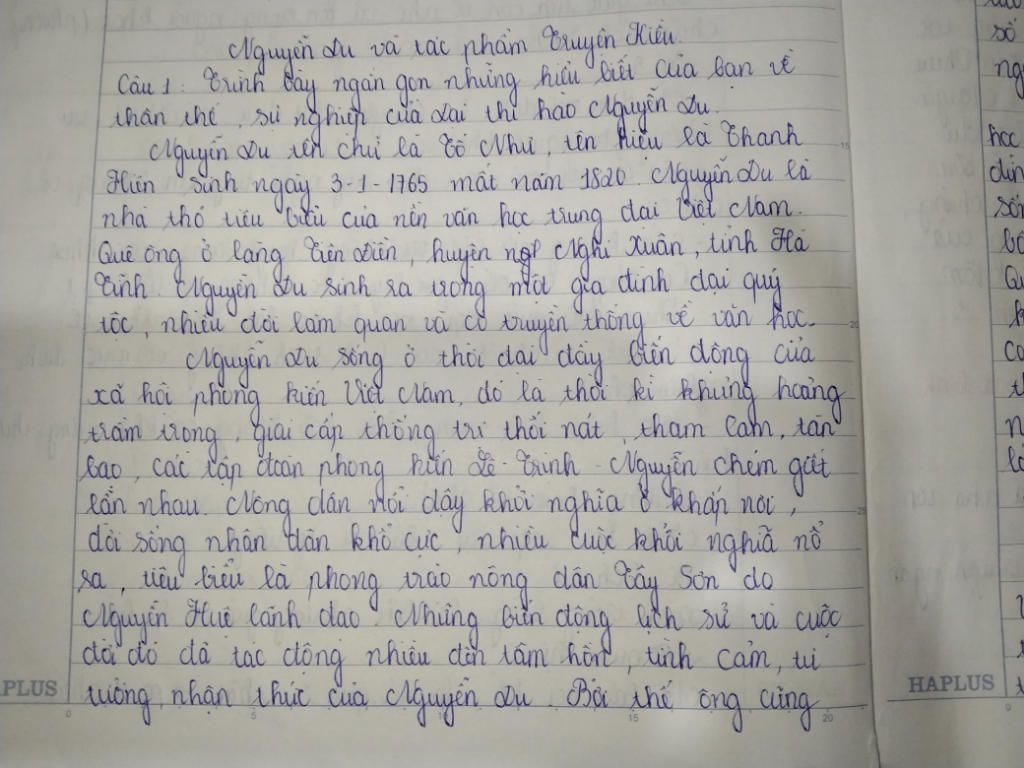 Nguyễn Du và tác phẩm Truyện Kiều
Câu 1: Trình bày ngắn gọn những hiểu biết của bạn về
thân thế, sự nghiệp của đại thi hào Nguyễn Du.
Nguyễn Du tên chữ là Tố Như, tên hiệu là Thanh
Hiên sinh ngày 3-1-1765 mất năm 1820. Nguyễn Du là
nhà thơ tiêu biểu của nền văn học trung đại Việt Nam.
Quê ông ở làng Tiên Điền, huyện Nghi Xuân, tỉnh Hà
Tĩnh. Nguyễn Du sinh ra trong một gia đình đại quý
tộc, nhiều đời làm quan và có truyền thống về văn học.
Nguyễn Du sống ở thời đại đầy biến động của
xã hội phong kiến Việt Nam, đó là thời kì khủng hoảng
trầm trọng, giai cấp thống trị thối nát, tham lam, tàn
bạo, các tập đoàn phong kiến Lê - Trịnh - Nguyễn chém giết
lẫn nhau. Nông dân nổi dậy khởi nghĩa ở khắp nơi,
đời sống nhân dân khổ cực, nhiều cuộc khởi nghĩa nổ
ra, tiêu biểu là phong trào nông dân Tây Sơn do
Nguyễn Huệ lãnh đạo. Những biến động lịch sử và cuộc
đời đó đã tác động nhiều đến tâm hồn, tình cảm, tư
tưởng, nhận thức của Nguyễn Du. Bởi thế ông cũng
PLUS
HAPLUS